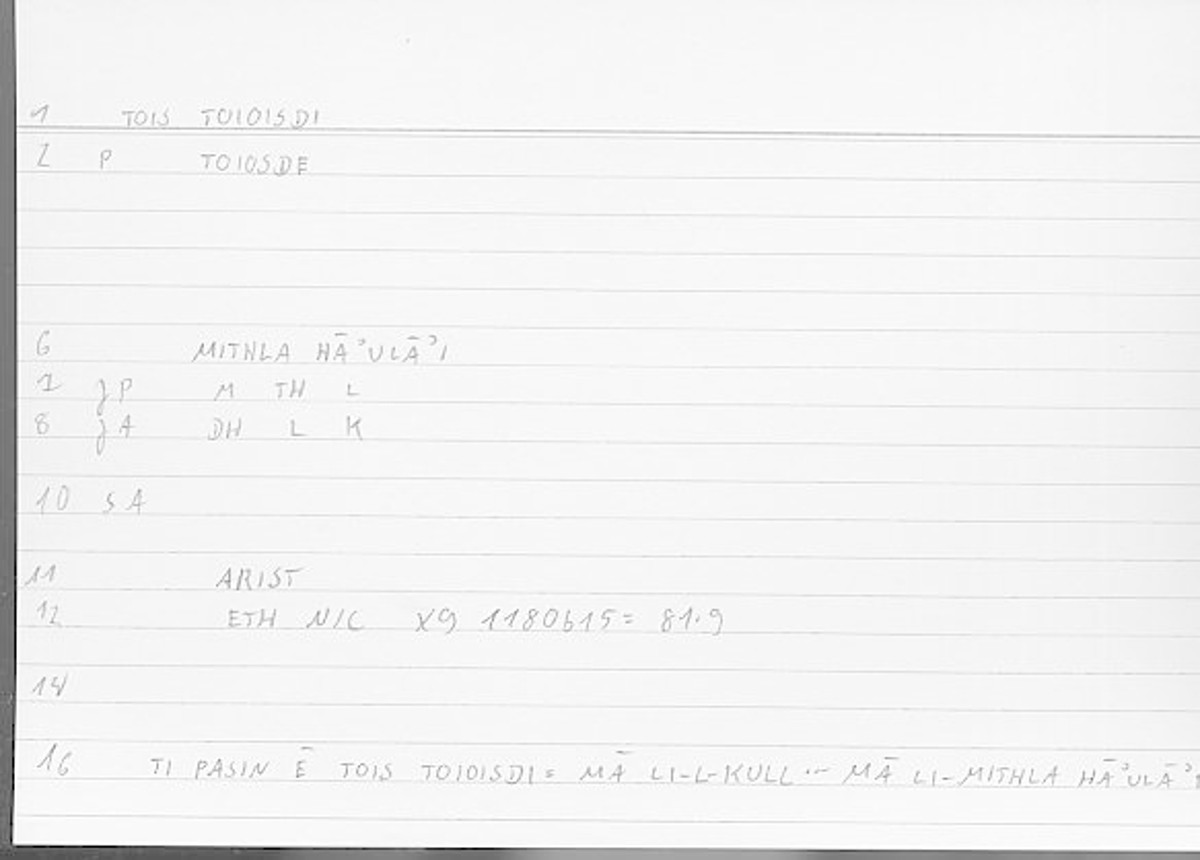 1 TOIS TOIOISDI
2 P TOIOSDE
6 MITHLA HĀʾULĀʾI
7 jP M TH L
8 jA DH L K
10 SA
11 ARIST
12 ETH NIC X9 1180b15 = 81.9
14
16 TI PASIN Ē TOIS TOIOISDI = MĀ LI-L-KULL ... MĀ LI-MITHLA HĀʾULĀʾI